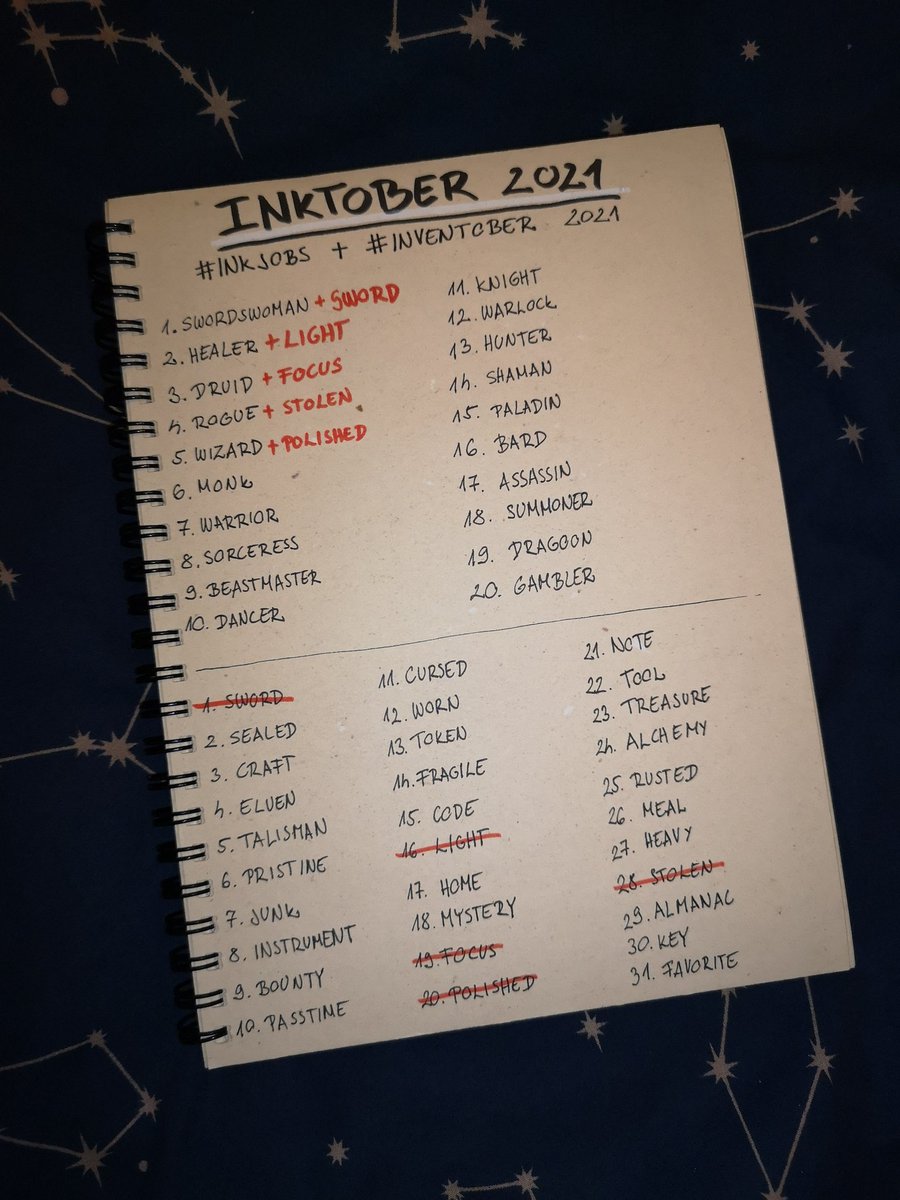 INKTOBER 2021
#INKJOBS + #INVENTOBER 2021
1. SWORDSWOMAN + SWORD
2. HEALER + LIGHT
3. DRUID + FOCUS
4. ROGUE + STOLEN
5. WIZARD + POLISHED
6. MONK
7. WARRIOR
8. SORCERESS
9. BEASTMASTER
10. DANCER
11. KNIGHT
12. WARLOCK
13. HUNTER
14. SHAMAN
15. PALADIN
16. BARD
17. ASSASSIN
18. SUMMONER
19. DRAGOON
20. GAMBLER
1. SWORD
2. SEALED
3. CRAFT
4. ELVEN
5. TALISMAN
6. PRISTINE
7. JUNK
8. INSTRUMENT
9. BOUNTY
10. PASSTIME
11. CURSED
12. WORN
13. TOKEN
14. FRAGILE
15. CODE
16. LIGHT
17. HOME
18. MYSTERY
19. FOCUS
20. POLISHED
21. NOTE
22. TOOL
23. TREASURE
24. ALCHEMY
25. RUSTED
26. MEAL
27. HEAVY
28. STOLEN
29. ALMANAC
30. KEY
31. FAVORITE